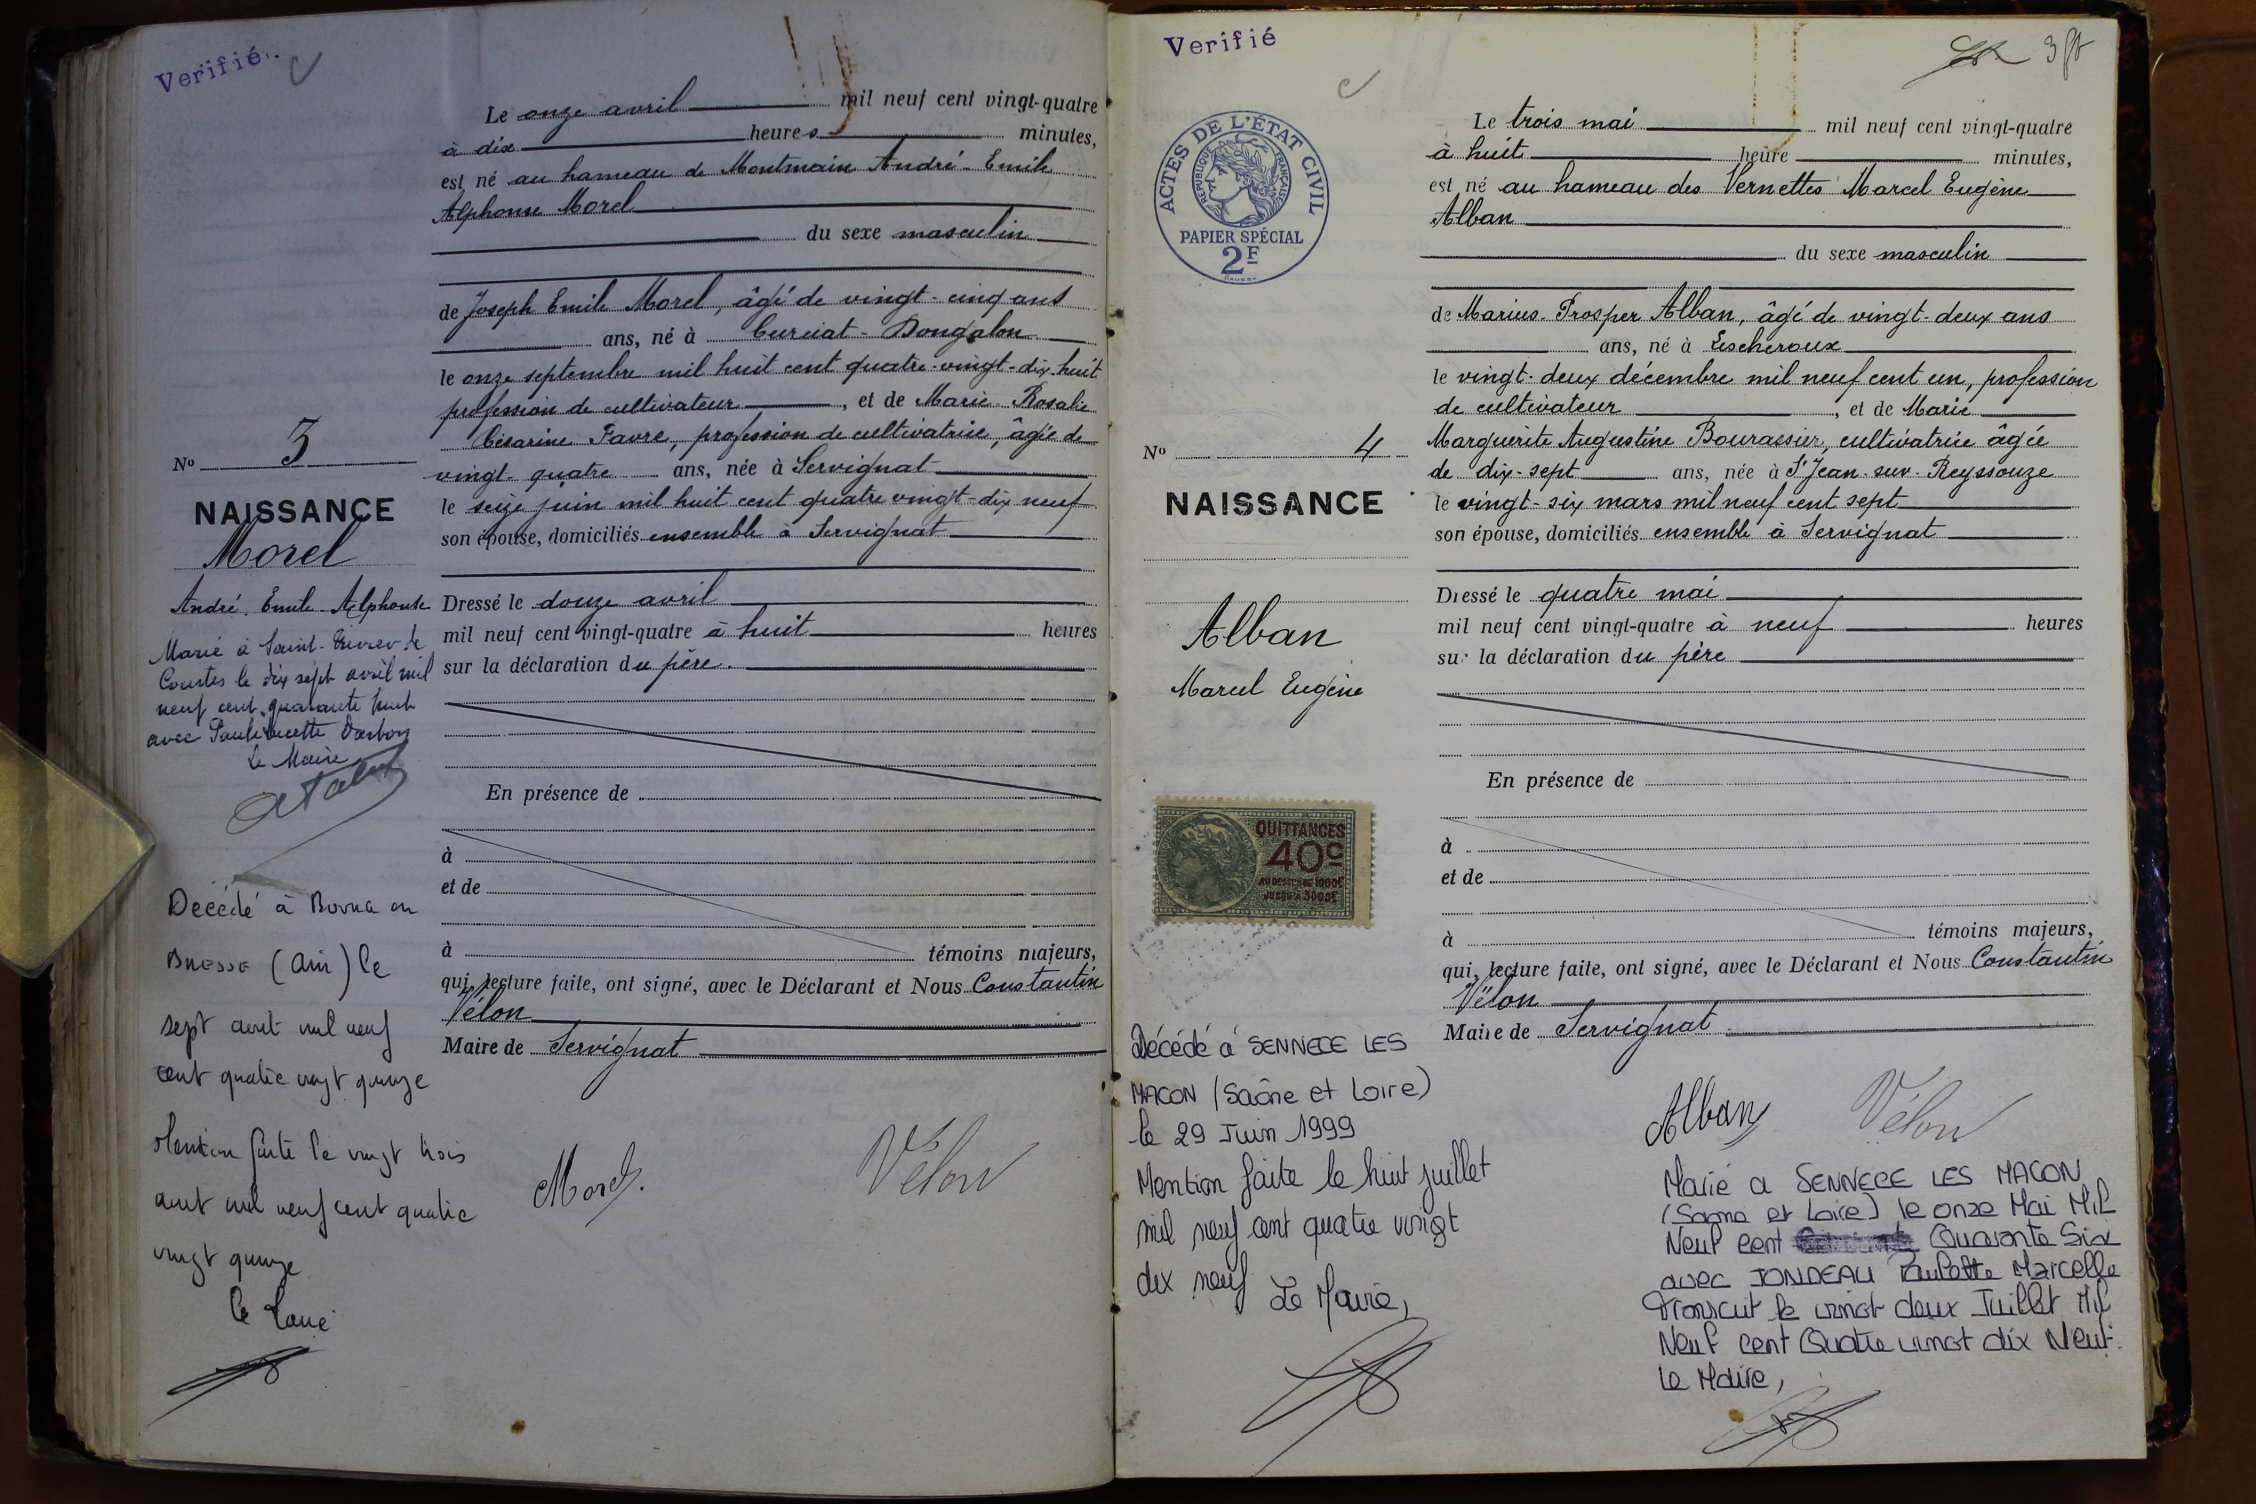 Verifié.
Le onze avril mil neuf cent vingt-quatre
à dix heures minutes,
est né au hameau de Montmain André-Emile
Alphonse Morel
du sexe masculin
de Joseph Emile Morel, âgé de vingt-cinq ans
ans, né à Curciat-Dongalon
le onze septembre mil huit cent quatre-vingt-dix-huit
profession de cultivateur, et de Marie Rosalie
Césarine Favre, profession de cultivatrice, âgée de
vingt-quatre ans, née à Servignat
le seize juin mil huit cent quatre vingt-dix neuf
son épouse, domiciliés ensemble à Servignat
Dressé le douze avril
mil neuf cent vingt-quatre à huit heures
sur la déclaration du père.
En présence de
à
et de
à témoins majeurs,
qui, lecture faite, ont signé, avec le Déclarant et Nous Constantin
Vélon
Maire de Servignat
Morel.
Vélon
No 3
NAISSANCE
Morel
André-Emile-Alphonse
Marié à Saint-Trivier de
Courtes le dix sept avril mil
neuf cent quarante huit
avec Paule Lucette Darbon
Le Maire
Décédé à Bourg en
BRESSE (Ain) le
sept août mil neuf
cent quatre vingt quinze
Mention faite le vingt trois
août mil neuf cent quatre
vingt quinze
Le Maire
Verifié
3
ACTES DE L'ÉTAT CIVIL
RÉPUBLIQUE FRANÇAISE
PAPIER SPÉCIAL
2F
Le trois mai mil neuf cent vingt-quatre
à huit heure minutes,
est né au hameau des Vernettes Marcel Eugène
Alban
du sexe masculin
de Marius-Prosper Alban, âgé de vingt-deux ans
ans, né à Lescheroux
le vingt-deux décembre mil neuf cent un, profession
de cultivateur, et de Marie
Marguerite Augustine Bourassier, cultivatrice âgée
de dix-sept ans, née à St Jean-sur-Reyssouze
le vingt-six mars mil neuf cent sept
son épouse, domiciliés ensemble à Servignat
Dressé le quatre mai
mil neuf cent vingt-quatre à neuf heures
sur la déclaration du père
En présence de
à
et de
à témoins majeurs,
qui, lecture faite, ont signé, avec le Déclarant et Nous Constantin
Vélon
Maire de Servignat
Alban
Vélon
No 4
NAISSANCE
Alban
Marcel Eugène
QUITTANCES
40c
AU DESSUS DE 1000F
JUSQU'A 3000F
Décédé à SENNECE LES
MACON (Saône et Loire)
le 29 Juin 1999
Mention faite le huit juillet
mil neuf cent quatre vingt
dix neuf Le Maire,
Marié a SENNECE LES MACON
(Saone et Loire) le onze Mai Mil
Neuf cent Quarante Six
avec JONDEAU Paulette Marcelle
Transcrit le vingt deux Juillet Mil
Neuf cent Quatre vingt dix Neuf.
Le Maire,